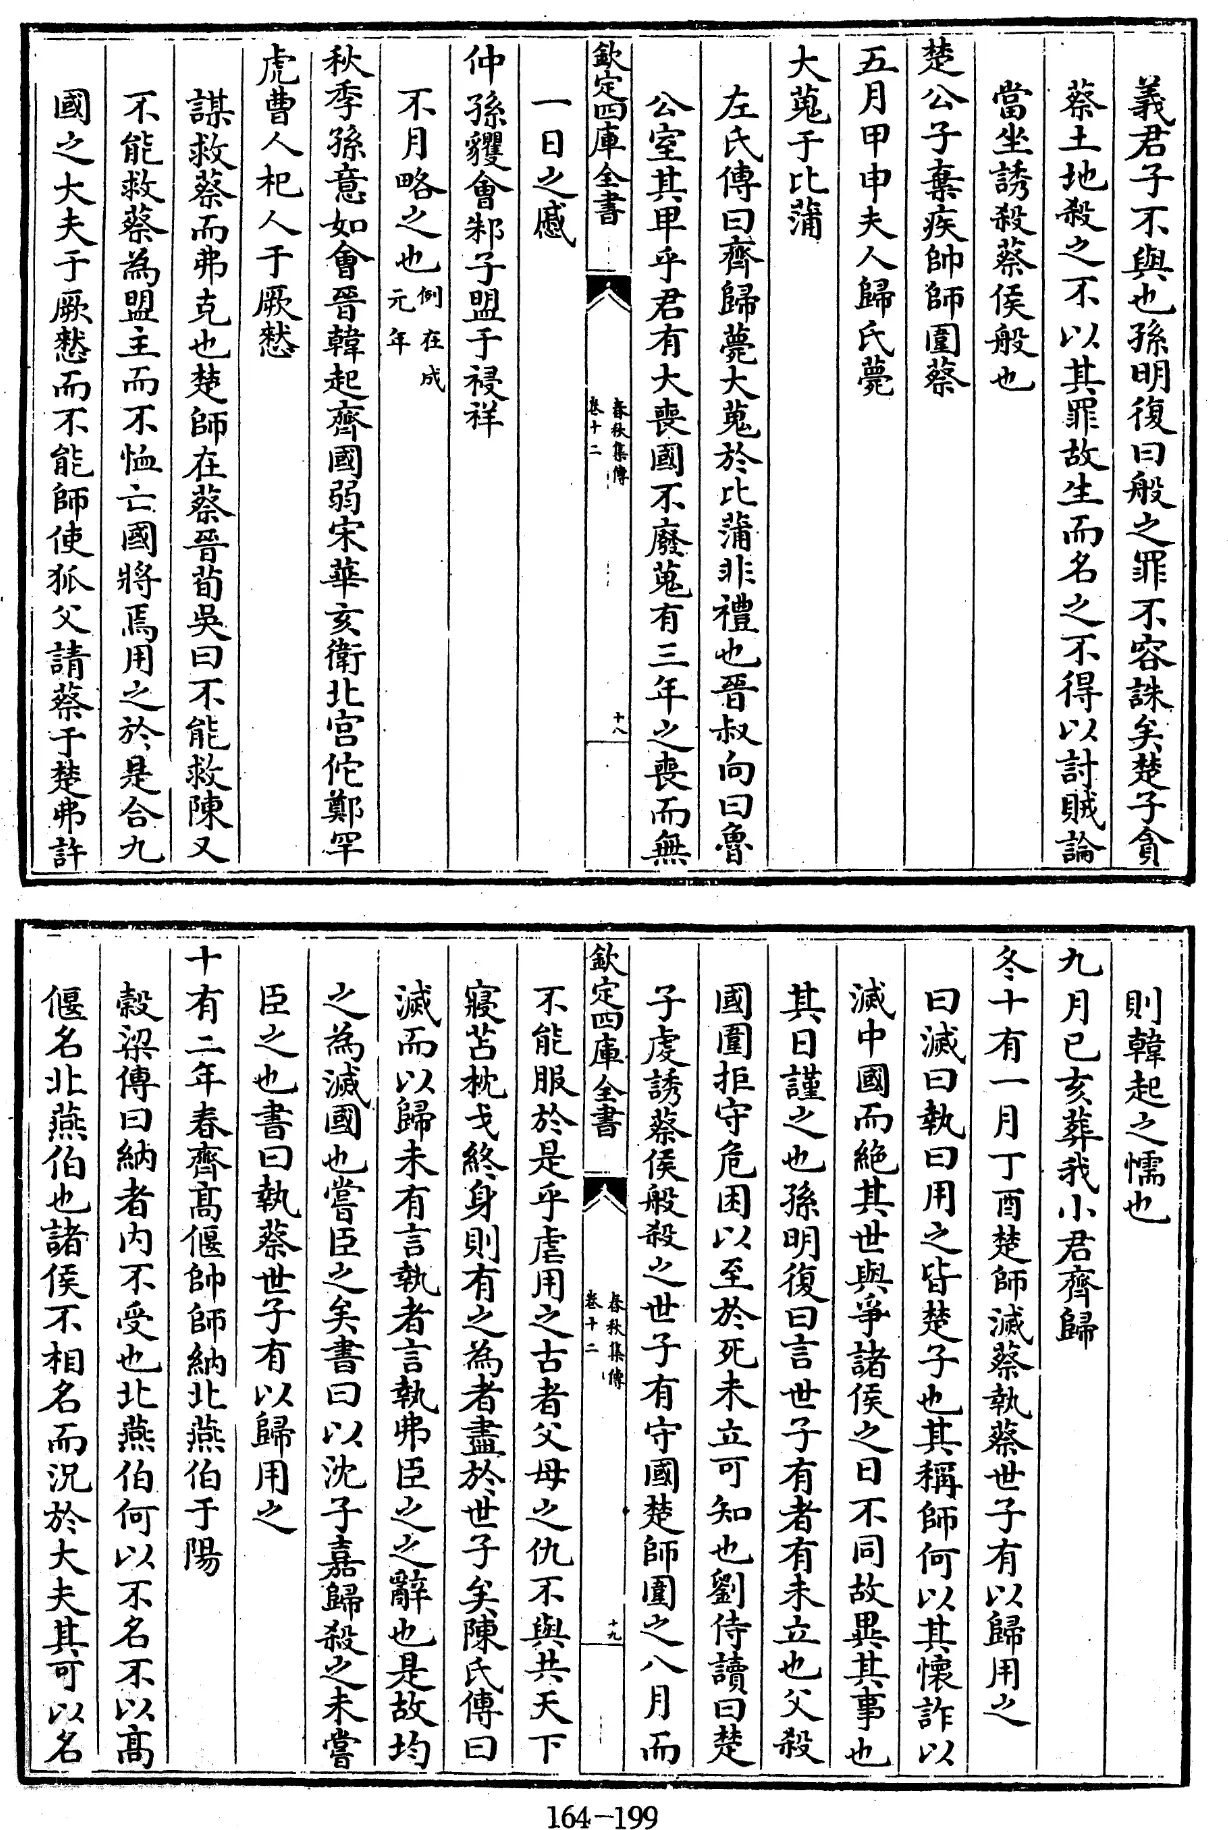 義君子不與也孫明復曰般之罪不容誅矣楚子貪
蔡土地殺之不以其罪故生而名之不得以討賊論
當坐誘殺蔡侯般也
楚公子棄疾帥師圍蔡
五月甲申夫人歸氏薨
大蒐于比蒲
左氏傳曰齊歸薨大蒐於比蒲非禮也晉叔向曰魯
公室其卑乎君有大喪國不廢蒐有三年之喪而無
欽定四庫全書
春秋集傳
卷十二
十八
一日之慼
仲孫貜會邾子盟于祲祥
不月略之也例在成元年
秋季孫意如會晉韓起齊國弱宋華亥衛北宮佗鄭罕
虎曹人杞人于厥憖
謀救蔡而弗克也楚師在蔡晉荀吳曰不能救陳又
不能救蔡為盟主而不恤亡國將焉用之於是合九
國之大夫于厥憖而不能師使狐父請蔡于楚弗許
則韓起之懦也
九月已亥葬我小君齊歸
冬十有一月丁酉楚師滅蔡執蔡世子有以歸用之
曰滅曰執曰用之皆楚子也其稱師何以其懷詐以
滅中國而絶其世與爭諸侯之日不同故異其事也
其日謹之也孫明復曰言世子有者有未立也父殺
國圍拒守危困以至於死未立可知也劉侍讀曰楚
子虔誘蔡侯般殺之世子有守國楚師圍之八月而
欽定四庫全書
春秋集傳
卷十二
十九
不能服於是乎虐用之古者父母之仇不與共天下
寢苫枕戈終身則有之為者盡於世子矣陳氏傳曰
滅而以歸未有言執者言執弗臣之之辭也是故均
之為滅國也嘗臣之矣書曰以沈子嘉歸殺之未嘗
臣之也書曰執蔡世子有以歸用之
十有二年春齊髙偃帥師納北燕伯于陽
榖梁傳曰納者内不受也北燕伯何以不名不以髙
偃名北燕伯也諸侯不相名而況於大夫其可以名
164-199